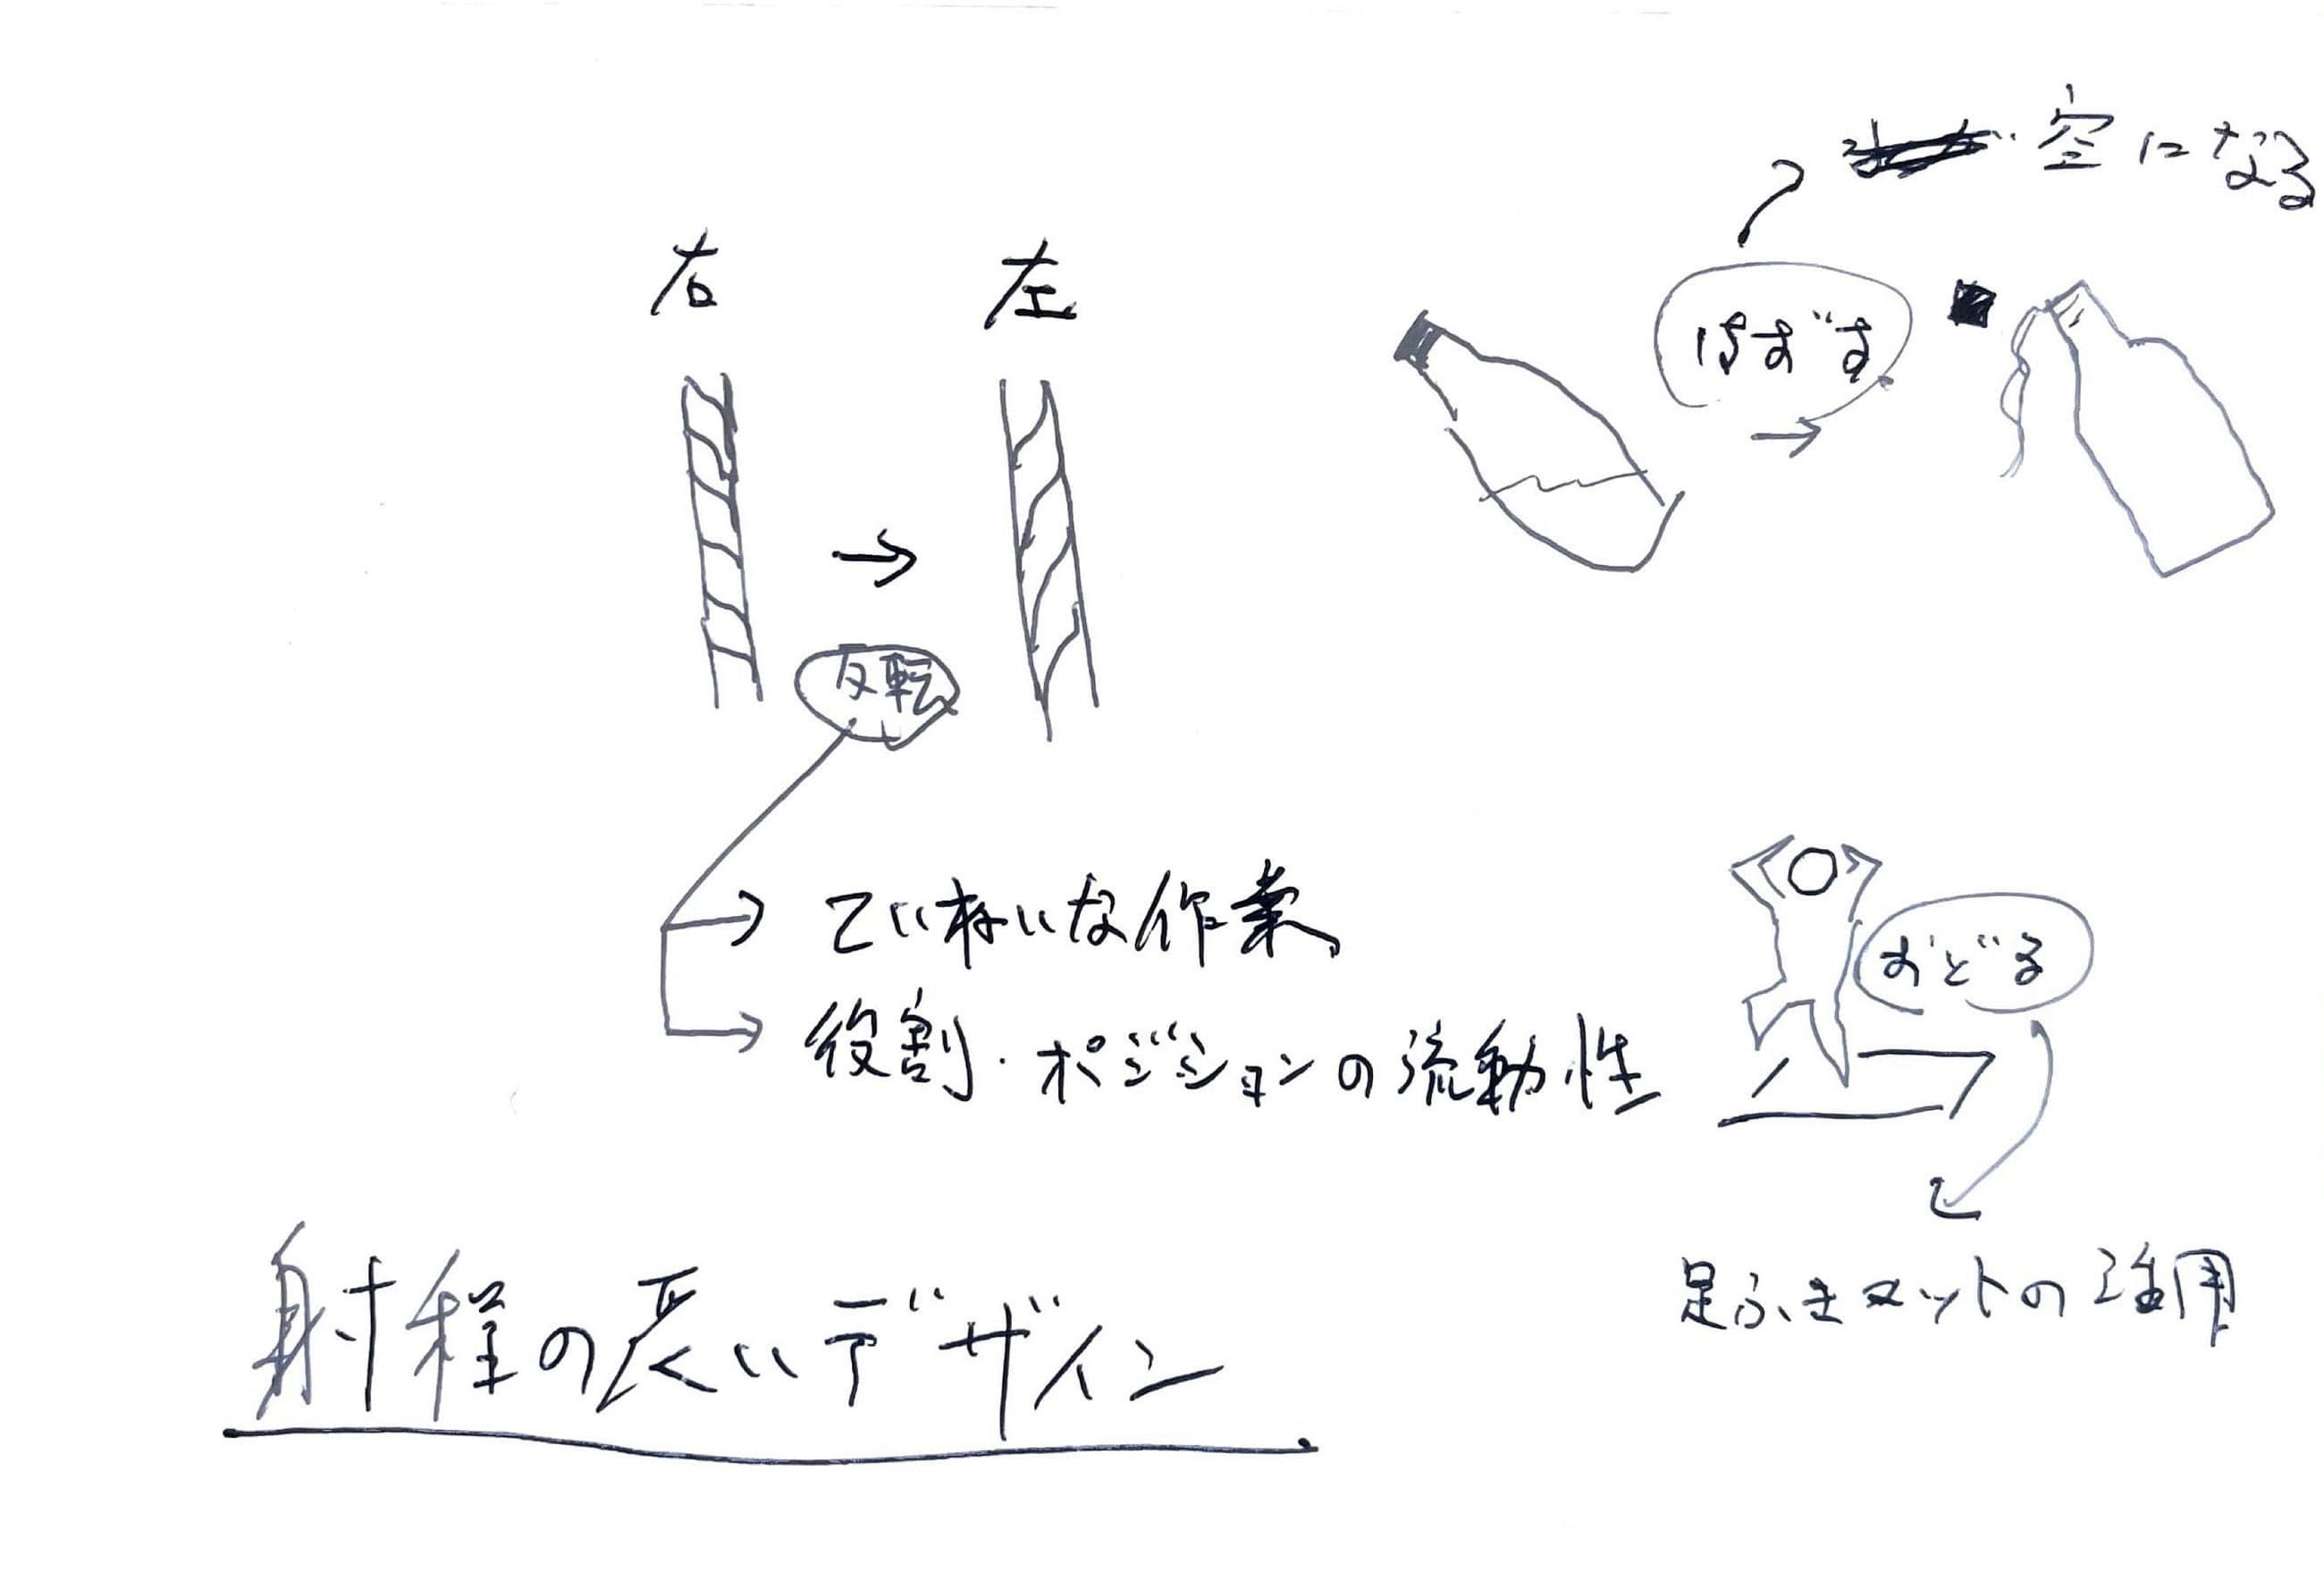 空になる
右
左
はずす
反転
ていねいな作業、
役割・ポジションの流動性
おどる
足ふきマットの活用
射様の長いデザイン